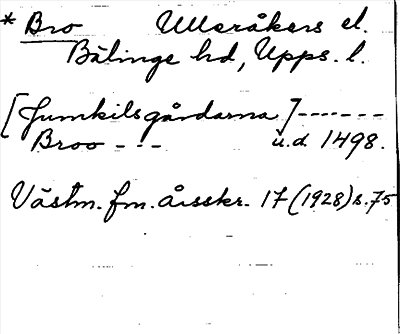 * Bro Ulleråkers el.
Bälinge hd, Upps. l.
[Jumkilsgårdarna]-------
Broo --- u.d. 1498.
Västm. fm. årsskr. 17 (1928) s. 75